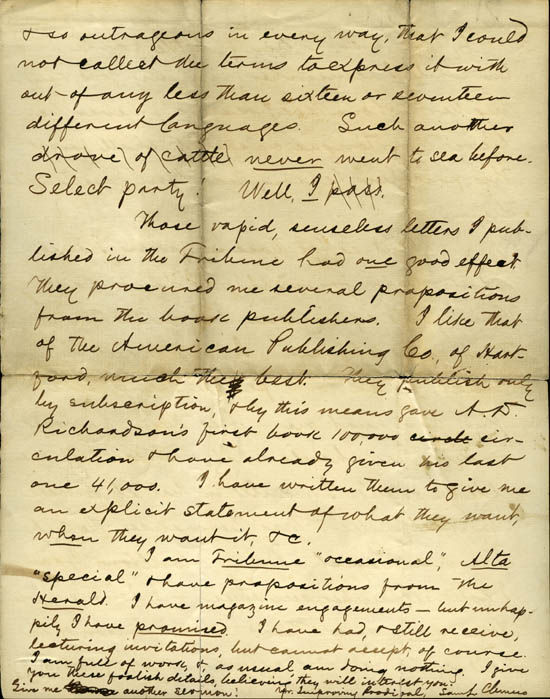 & so outrageous in every way, that I could
not collect the terms to express it with
out of any less than sixteen or seventeen
different languages. Such another
drove of cattle never went to sea before.
Select party! Well, I pass.
Those vapid, senseless letters I pub-
lished in the Tribune had one good effect.
They procured me several propositions
from the book publishers. I like that
of the American Publishing Co., of Hart-
ford, much the best. They publish only
by subscription, & by this means gave A. D.
Richardson's first book 100,000 circle cir-
culation & have already given his last
one 41,000. I have written them to give me
an explicit statement of what they want,
when they want it, &c.
I am Tribune "occasional", Alta
"special" & have propositions from the
Herald. I have magazine engagements — but unhap-
pily I have promised. I have had, & still receive,
lecturing invitations, but cannot accept, of course.
I am full of work, & as usual am doing nothing. I give
you these foolish details, believing they will interest you.
Give me another sermon! Yr. Improving Prodigal, Saml. Clemens